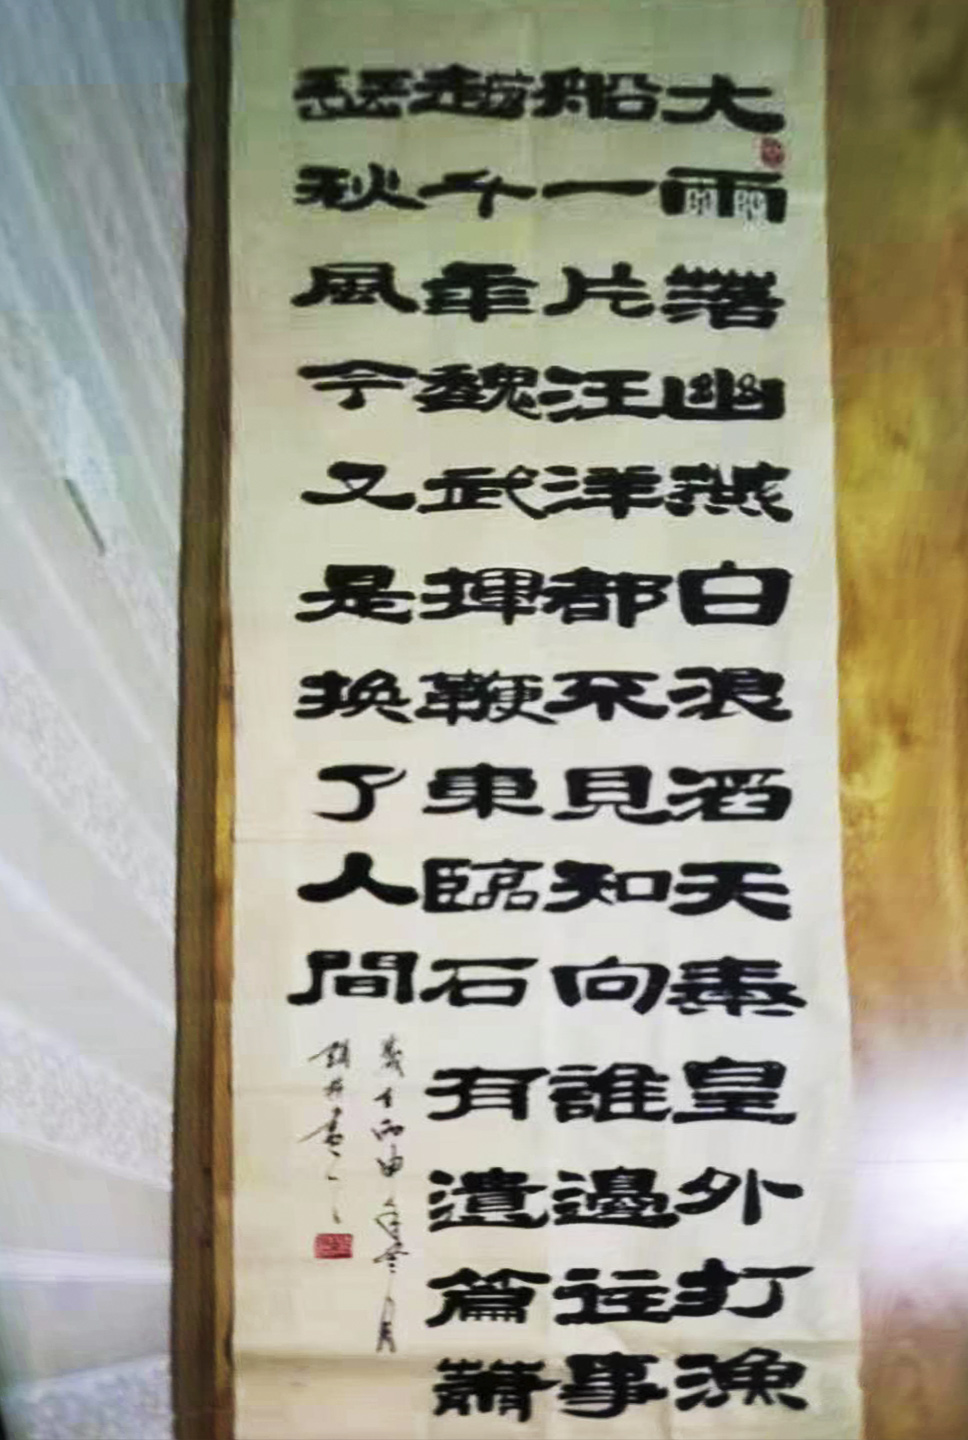 大雨落幽燕白浪滔天秦皇外打漁
船一片汪洋都不見知向誰邊往事
越千年魏武揮鞭東臨石有遺篇蕭
瑟秋風今又是換了人間
歲在丙申年冬月
書